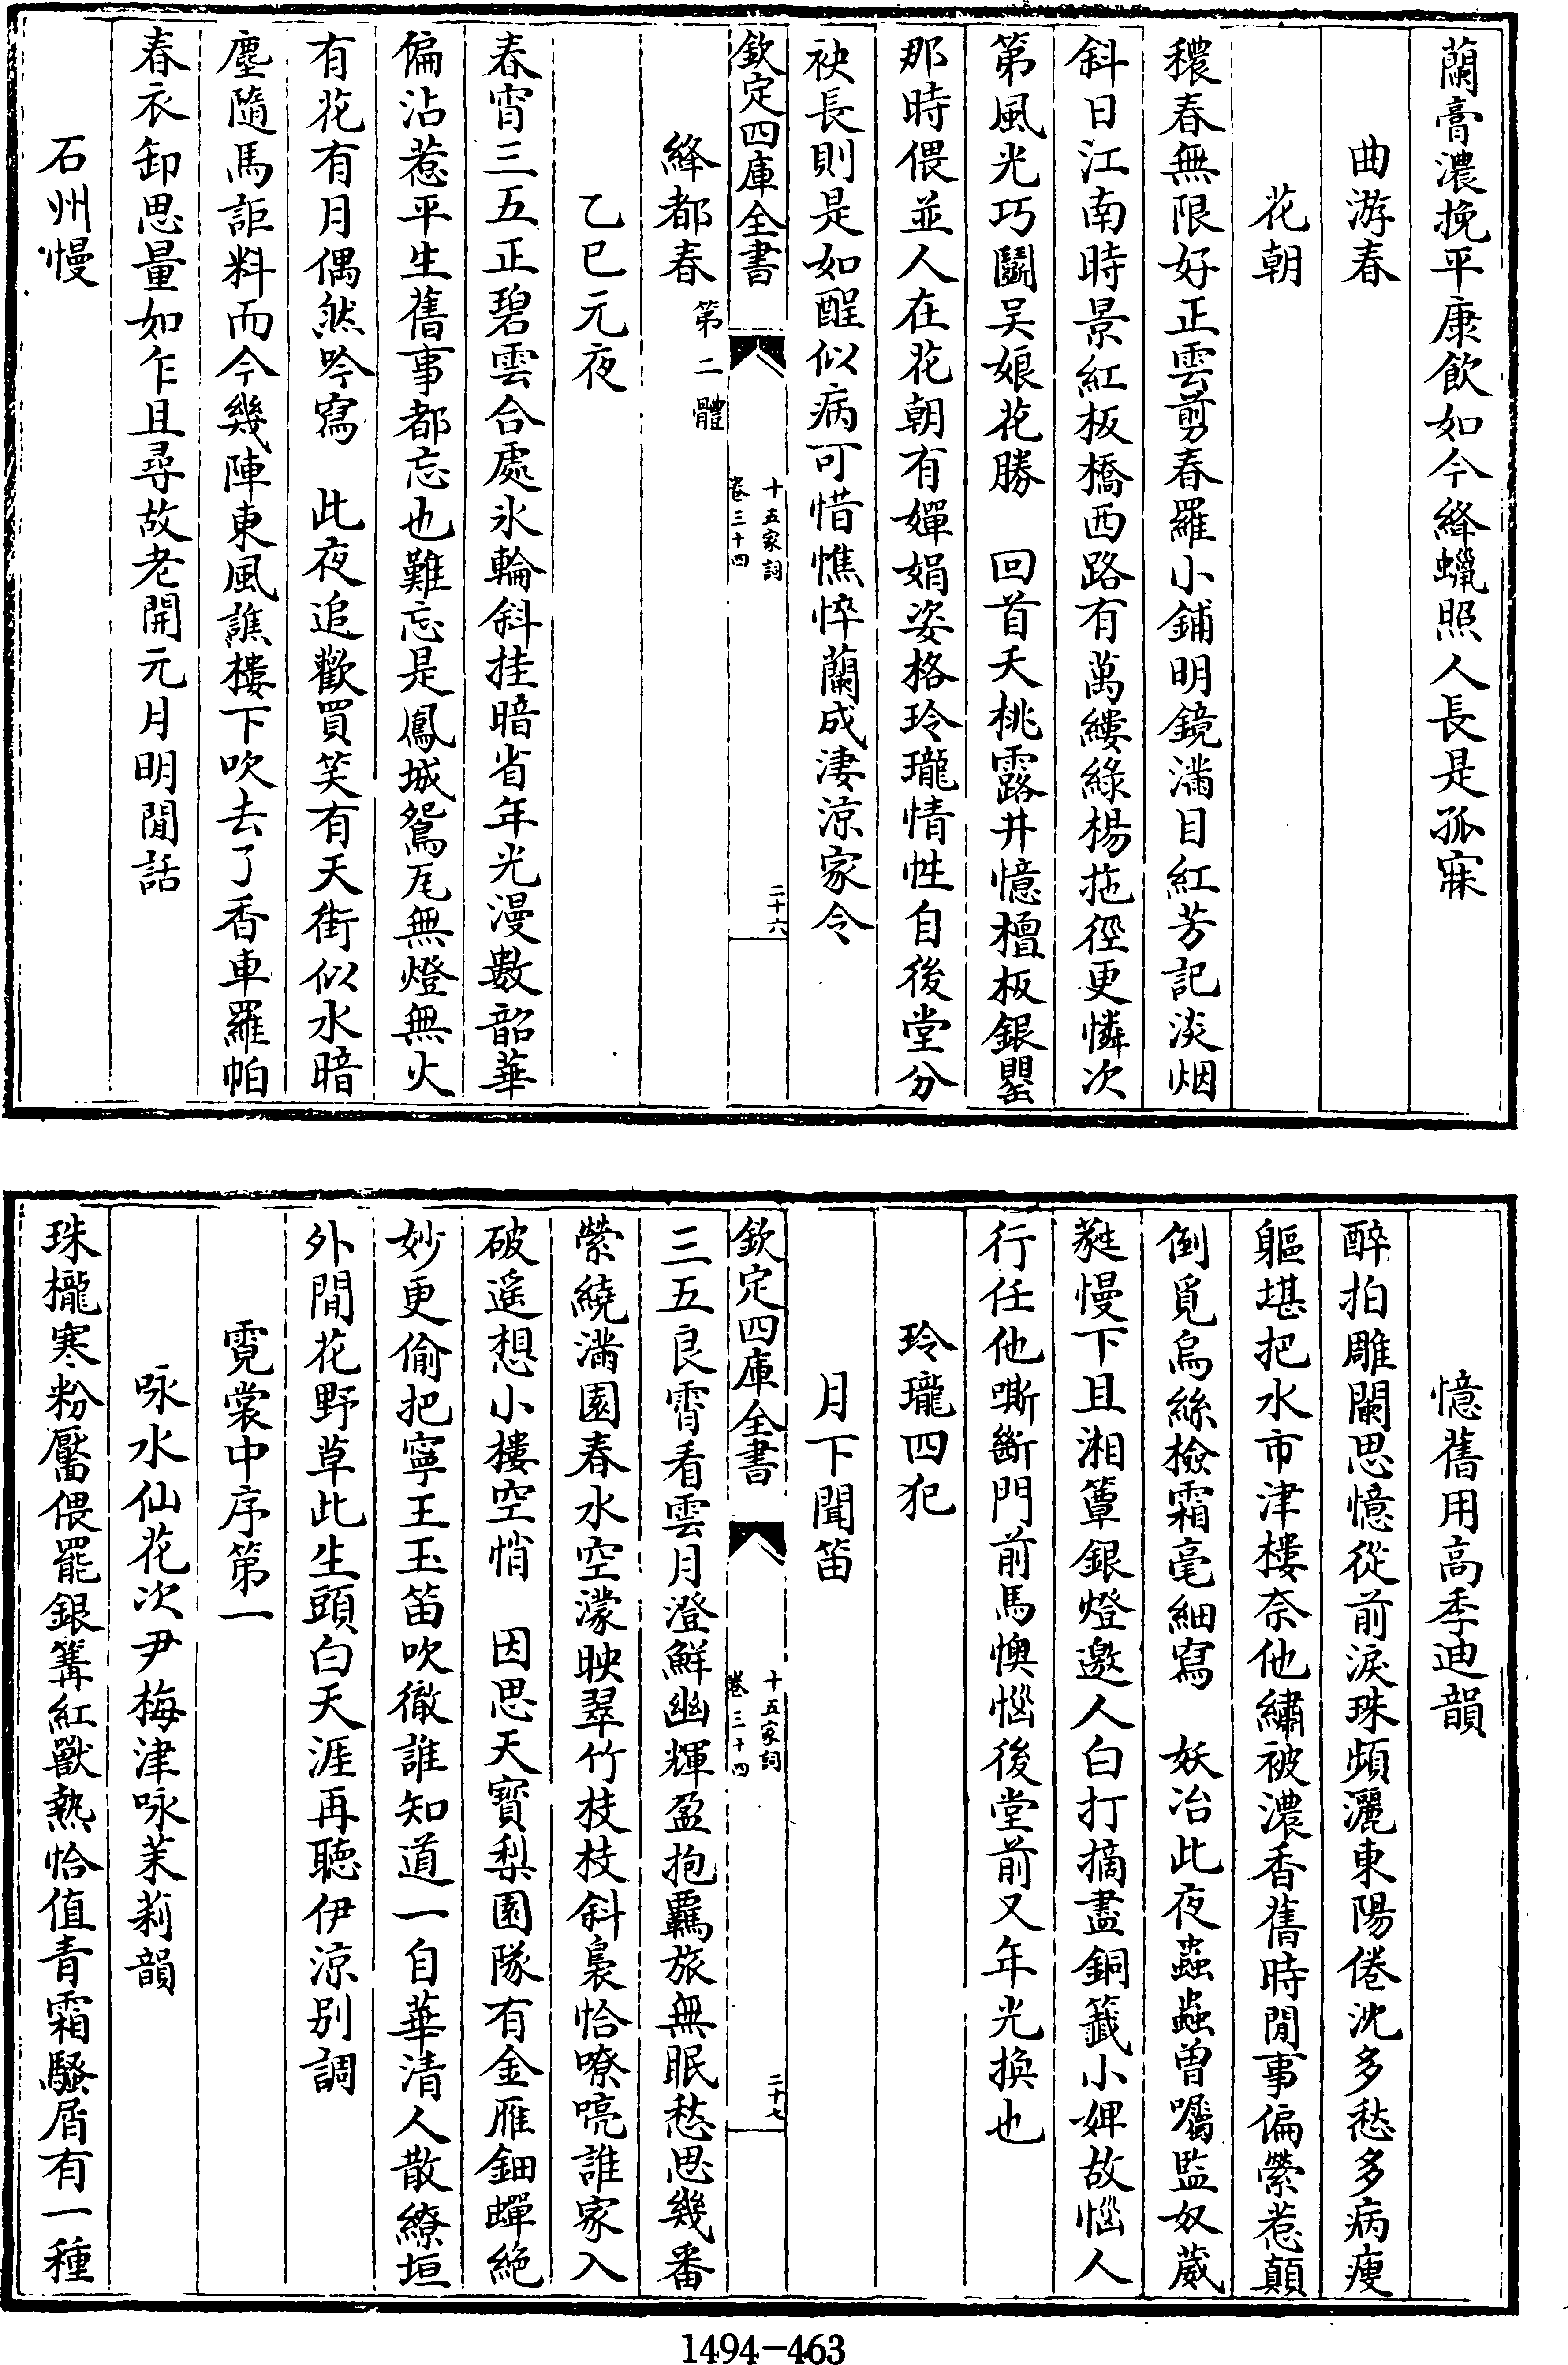 蘭膏濃挽平康飲如今絳蠟照人長是孤寐
曲游春
花朝
穠春無限好正雲剪春羅小鋪明鏡滿目紅芳記淡烟
斜日江南時景紅板橋西路有萬縷綠楊拖徑更憐次
第風光巧鬬吴娘花勝　回首夭桃露井憶檀板銀罌
那時偎並人在花朝有嬋娟姿格玲瓏情性自後堂分
袂長則是如酲似病可惜憔悴蘭成淒涼家令
欽定四庫全書
十五家詞
卷三十四
二十六
絳都春第二體
乙巳元夜
春宵三五正碧雲合處氷輪斜挂暗省年光漫數韶華
偏沾惹平生舊事都忘也難忘是鳳城鴛瓦無燈無火
有花有月偶然吟寫　此夜追歡買笑有天街似水暗
塵隨馬詎料而今幾陣東風譙樓下吹去了香車羅帕
春衣卸思量如乍且尋故老開元月明閒話
石州慢
憶舊用高季迪韻
醉拍雕闌思憶從前淚珠頻灑東陽倦沈多愁多病瘦
軀堪把水市津樓奈他繡被濃香舊時閒事偏縈惹顛
倒覓烏絲檢霜毫細寫　妖冶此夜蟲蟲曾囑監奴葳
蕤慢下且湘簟銀燈邀人白打摘盡銅籤小婢故惱人
行任他嘶斷門前馬懊惱後堂前又年光換也
玲瓏四犯
月下聞笛
欽定四庫全書
十五家詞
卷三十四
二十七
三五良霄看雲月澄鮮幽輝盈抱羈旅無眠愁思幾番
縈繞滿園春水空濛映翠竹枝枝斜裊恰嘹喨誰家入
破遥想小樓空悄　因思天寳梨園隊有金雁鈿蟬絕
妙更偷把寧王玉笛吹徹誰知道一自華清人散繚垣
外閒花野草此生頭白天涯再聽伊涼别調
霓裳中序第一
咏水仙花次尹梅津咏茉莉韻
珠櫳寒粉靨偎罷銀篝紅獸熱恰值青霜騷屑有一種
1494-463